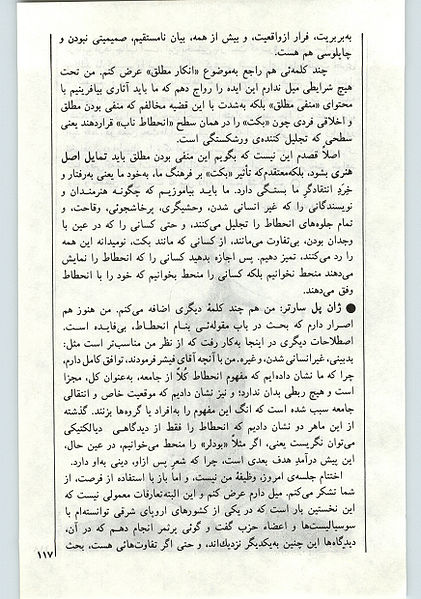 به‌بربریت، فرار ازواقعیت، و بیش از همه، بیان نامستقیم، صمیمیتی نبودن و
چاپلوسی هم هست.
چند کلمه‌ئی هم راجع به‌موضوع «انکار مطلق» عرض کنم. من تحت
هیچ شرایطی میل ندارم این ایده را رواج دهم که ما باید آثاری بیافرینیم با
محتوای «منفی مطلق» بلکه به‌شدت با این قضیه مخالفم که منفی بودن مطلق
و اخلاقی فردی چون «بکت» را در همان سطح «انحطاط ناب» قراردهند یعنی
سطحی که تجلیل کننده‌ی ورشکستگی است.
اصلاً قصدم این نیست که بگویم این منفی بودن مطلق باید تمایل اصل
هنری بشود، بلکه‌معتقدم‌که تأثیر «بکت» بر فرهنگ ما، به‌خود ما یعنی به‌رفتار و
خِرَدِ انتقادگرِ ما بستگی دارد. ما باید بیاموزیم که چگونه هنرمندان و
نویسندگانی را که غیر انسانی شدن، وحشیگری، پرخاشجوئی، وقاحت، و
تمام جلوه‌های انحطاط را تجلیل می‌کنند، و حتی کسانی را که در عین با
وجدان بودن، بی‌تفاوت می‌مانند، از کسانی که مانند بکت، نومیدانه این همه
را رد می‌کنند، تمیز دهیم. پس اجازه بدهید کسانی را که انحطاط را نمایش
می‌دهند منحط نخوانیم بلکه کسانی را منحط بخوانیم که خود را با انحطاط
وفق می‌دهند.
● ژان پل سارتر: من هم چند کلمهٔ دیگری اضافه می‌کنم. من هنوز هم
اصرار دارم که بحث در باب مقوله‌ئی بنام انحطاط، بی‌فایده است.
اصطلاحات دیگری در اینجا به‌کار رفت که از نظر من مناسب‌تر است مثل:
بدبینی، غیرانسانی شدن، و غیره. من با آنچه آقای فیشر فرمودند، توافق کامل دارم،
چرا که ما نشان داده‌ایم که مفهوم انحطاط کُلاً از جامعه، به‌عنوان کل، مجزا
است و هیچ ربطی بدان ندارد؛ و نیز نشان دادیم که موقعیت خاص و انتقالی
جامعه سبب شده است که انگ این مفهوم را به‌افراد یا گروه‌ها بزنند. گذشته
از این ماهر دو نشان دادیم که انحطاط را فقط از دیدگاهی دیالکتیکی
می‌توان نگریست یعنی، اگر مثلاً «بودلر» را منحط می‌خوانیم، در عین حال،
این پیش درآمدِ هدف بعدی است، چرا که شعرِ پس ازاو، دینی به‌او دارد.
اختتام جلسه‌ی امروز، وظیفهٔ من نیست، و اما باز با استفاده از فرصت، از
شما تشکر می‌کنم. میل دارم عرض کنم و این البته‌تعارفات معمولی نیست که
این نخستین بار است که در یکی از کشورهای اروپای شرقی توانسته‌ام با
سوسیالیست‌ها و اعضاء حزب گفت و گوئی پرثمر انجام دهم که در آن،
دیدگاه‌ها این چنین به‌یکدیگر نزدیك‌اند، و حتی اگر تفاوت‌هائی هست، بحث
۱۱۷